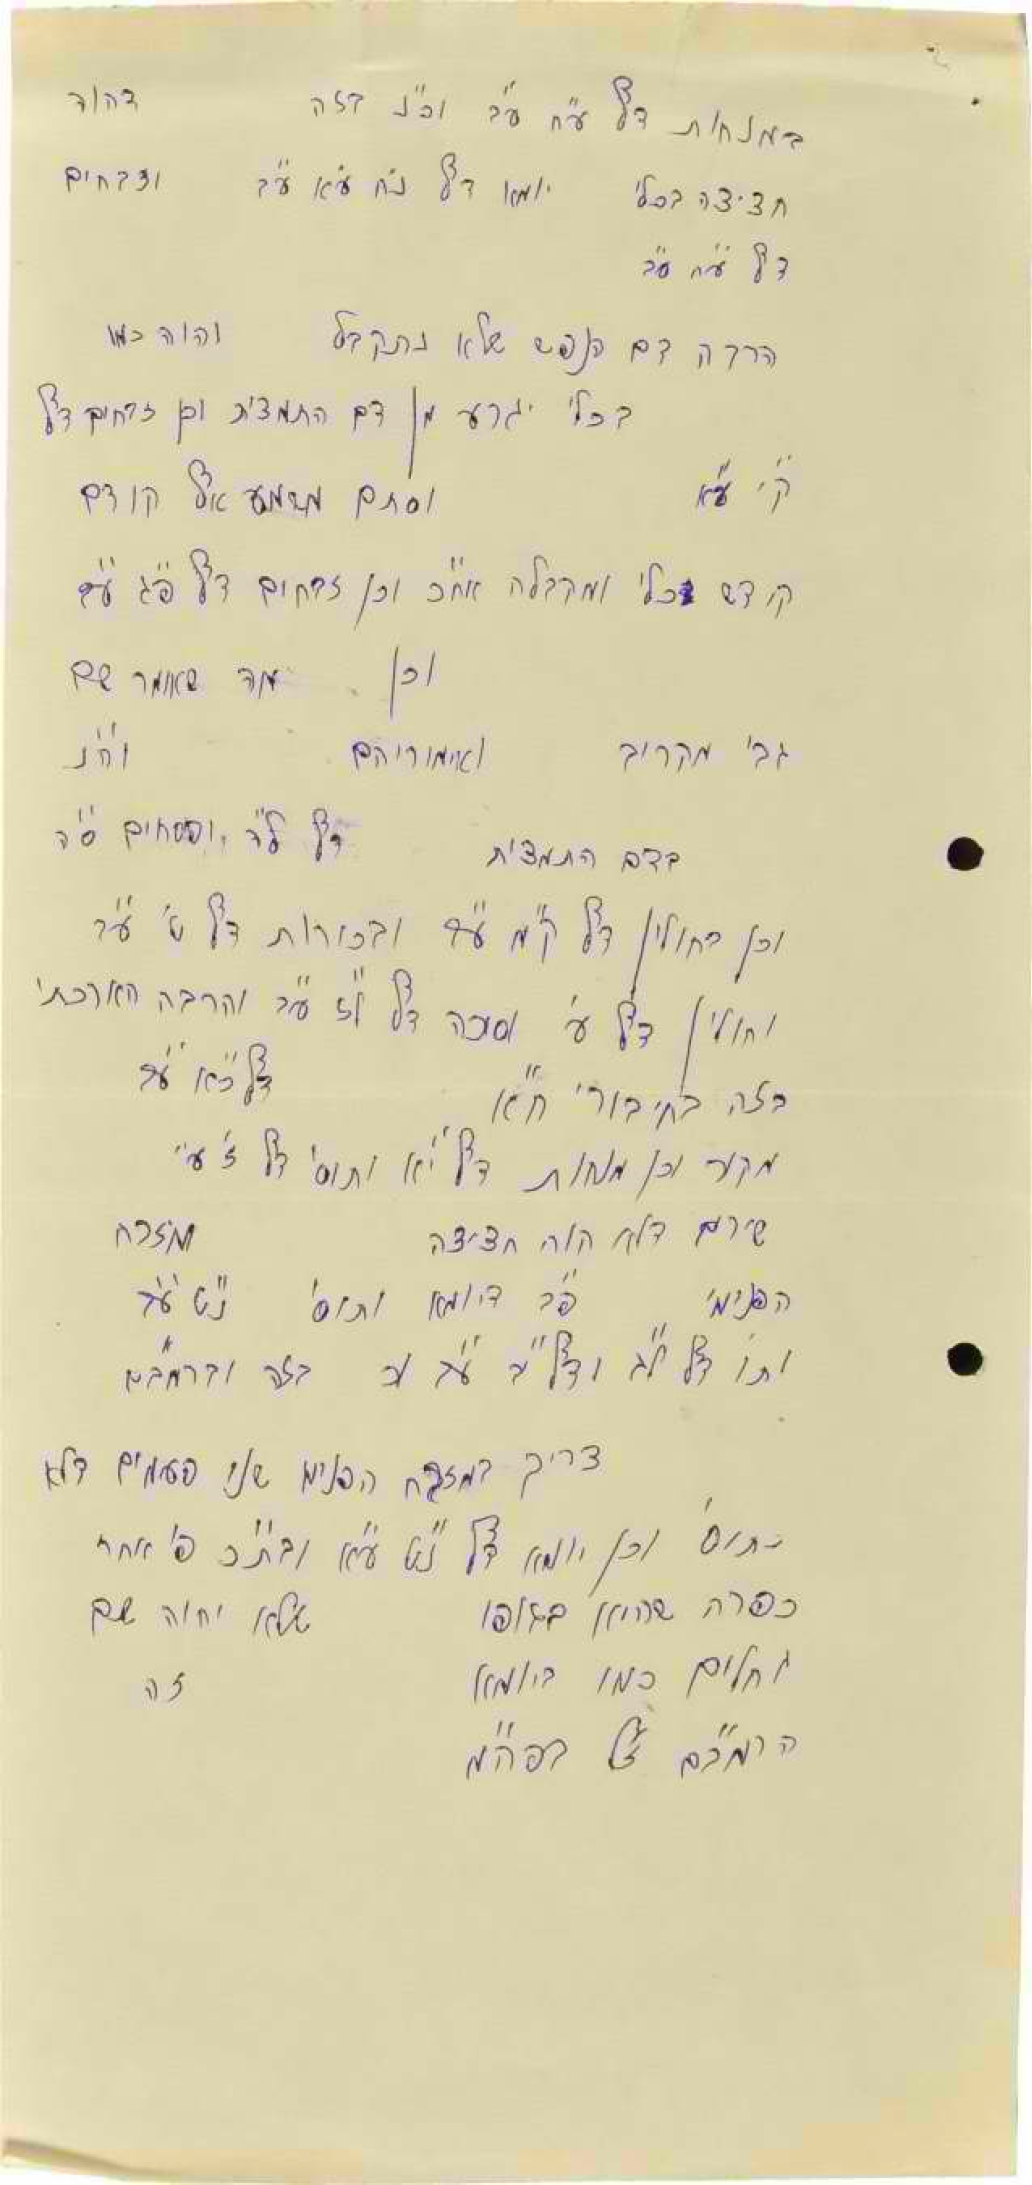 במנחות דף ע״ח ע״ב וכ״נ בזה דהוד
חציצה בכלי יומא דף נ״ח ע״א ע״ב וזבחים
דף ע״ח ע״ב
הרבה דם הנפש שלא נתקבל והוה כמו
בכלי יגרע מן דם התמצית וכן זבחים דף
ק״י ע״א וסתם משמע אף קודם
קידש בכלי ומקבלה אח״כ וכן זבחים דף פ״ג ע״ב
וכן מה שאומר שם
גבי מקריב ואימוריהם
בדם התמצית דף ל״ד ופסחים ס״ה
וכן בחולין דף ק״מ ע״ב ובכורות דף ט׳ ע״ב
וחולין דף ע׳ וסוכה דף ל״ז ע״ב והרבה הארכתי
בזה בחיבורי ח״א דף כ״א ע״ב
וכן מנחות דף י״א ותוס׳ דף
שירים דלא הוה חציצה מזבח
הפנימי פ״ב דיומא ותוס׳ נ״ט ע״ב
ותו׳ דף ל״ג ודף ע״ב בזה וברמב״ם
צריך במזבח הפנימי שני פעמים דלא
כתוס׳ וכן יומא דף נ״ט ע״א ובת״כ פ׳ אחרי
כפרה שהיא בגופו שלא יהוה שם
גחלים כמו ביומא זה
הרמב״ם ז״ל בפה״מ